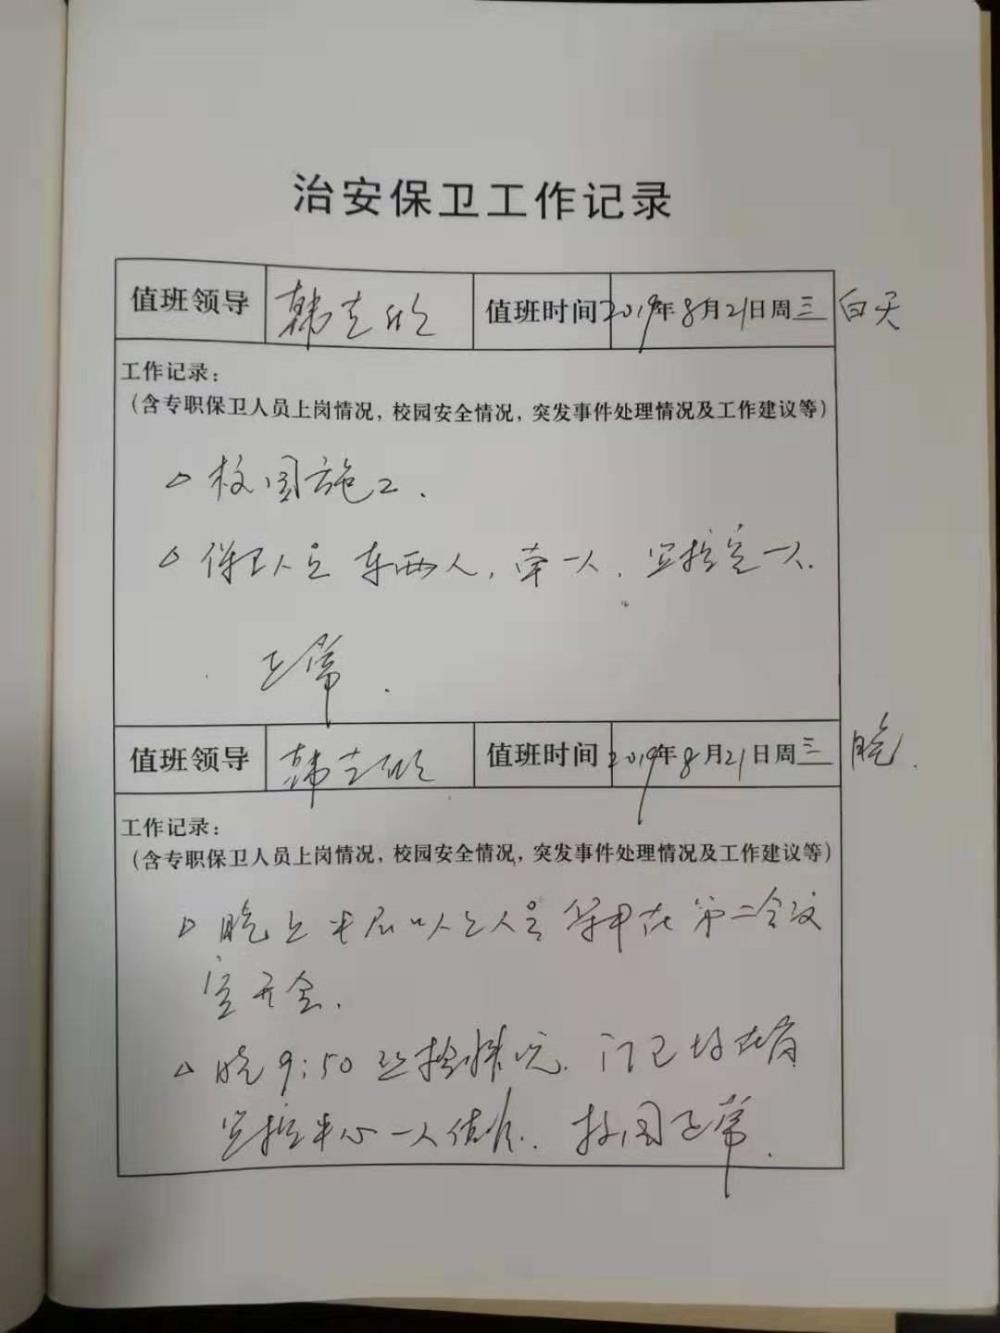 治安保卫工作记录
值班领导 韩志欣 值班时间 2019年8月21日周三 白天
工作记录：
（含专职保卫人员上岗情况，校园安全情况，突发事件处理情况及工作建议等）
△校园施工．
△保卫人员 东两人，南一人．监控室一人．
正常．
值班领导 韩志欣 值班时间 2019年8月21日周三 晚．
工作记录：
（含专职保卫人员上岗情况，校园安全情况，突发事件处理情况及工作建议等）
△晚上中层以上人员 在第二会议
室开会．
△晚9:50 门卫均在岗
监控中心一人值班．校园正常．